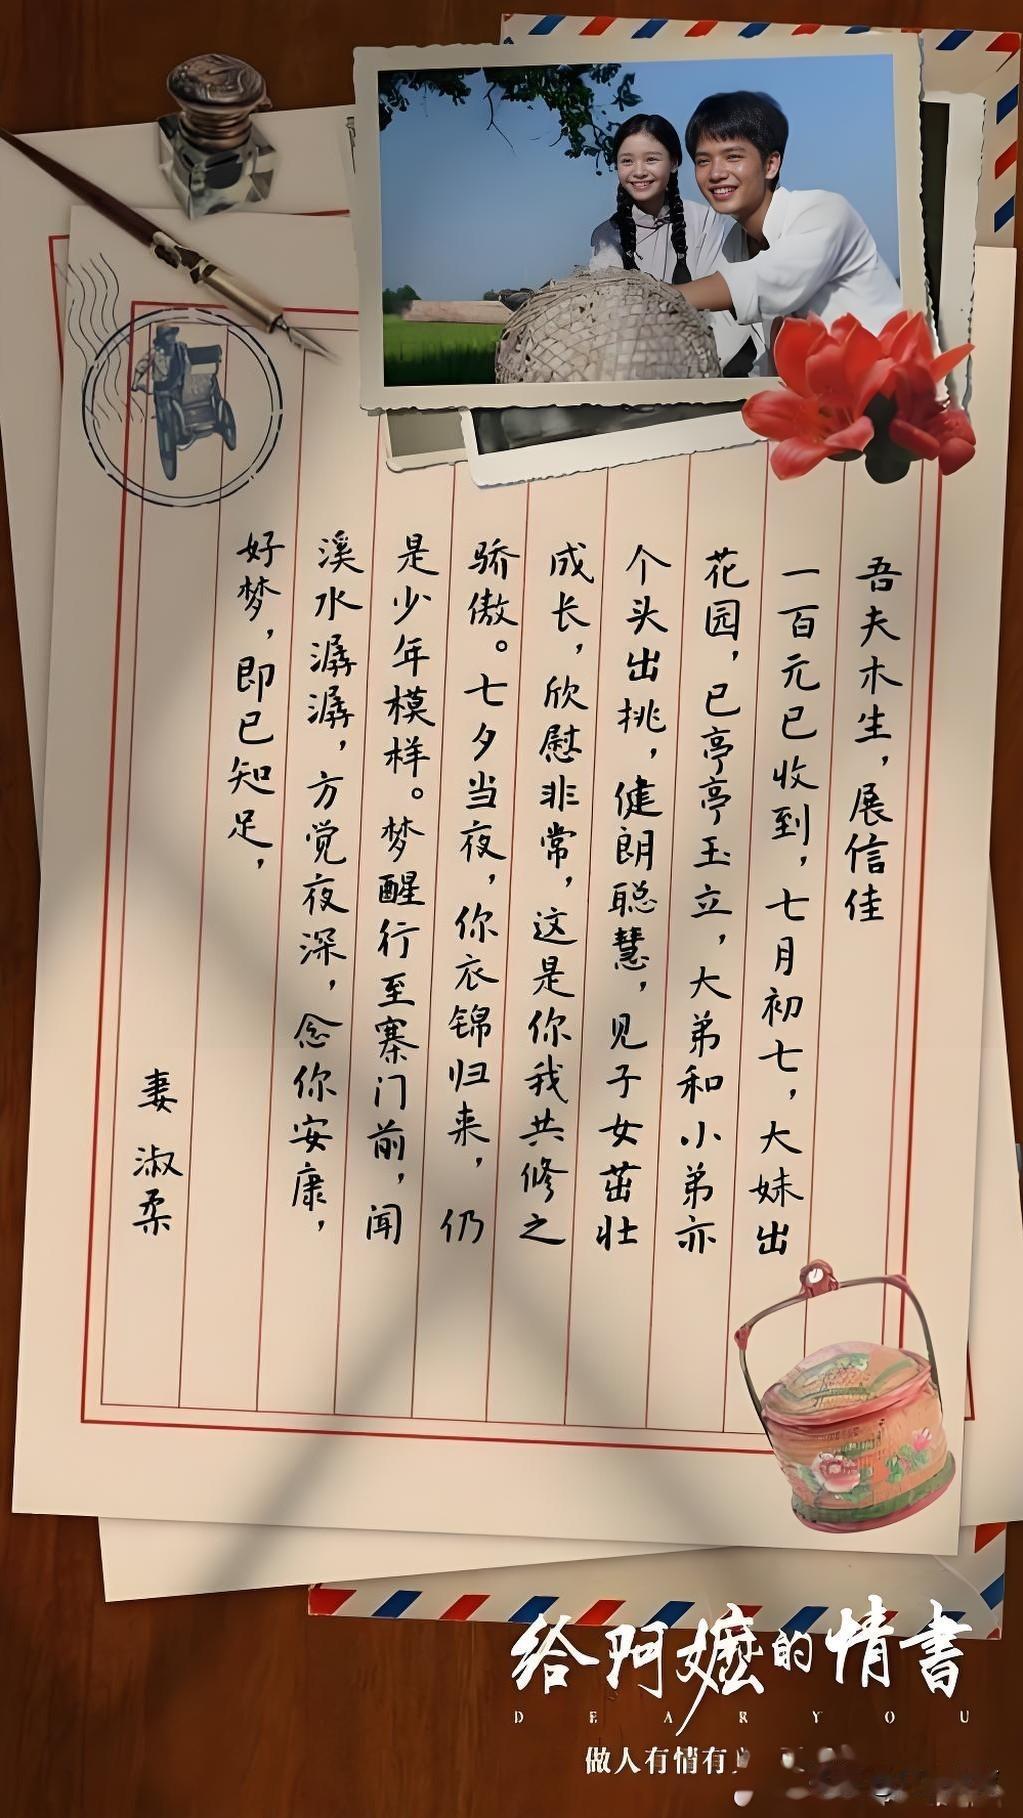 吾夫木生，展信佳
一百元已收到，七月初七，大妹出
花园，已亭亭玉立，大弟和小弟亦
个头出挑，健朗聪慧，见子女茁壮
成长，欣慰非常，这是你我共修之
骄傲。七夕当夜，你衣锦归来，仍
是少年模样。梦醒行至寨门前，闻
溪水潺潺，方觉夜深，念你安康，
好梦，即已知足，
妻 淑柔
给阿嬷的情書
DEAR YOU
做人有情有